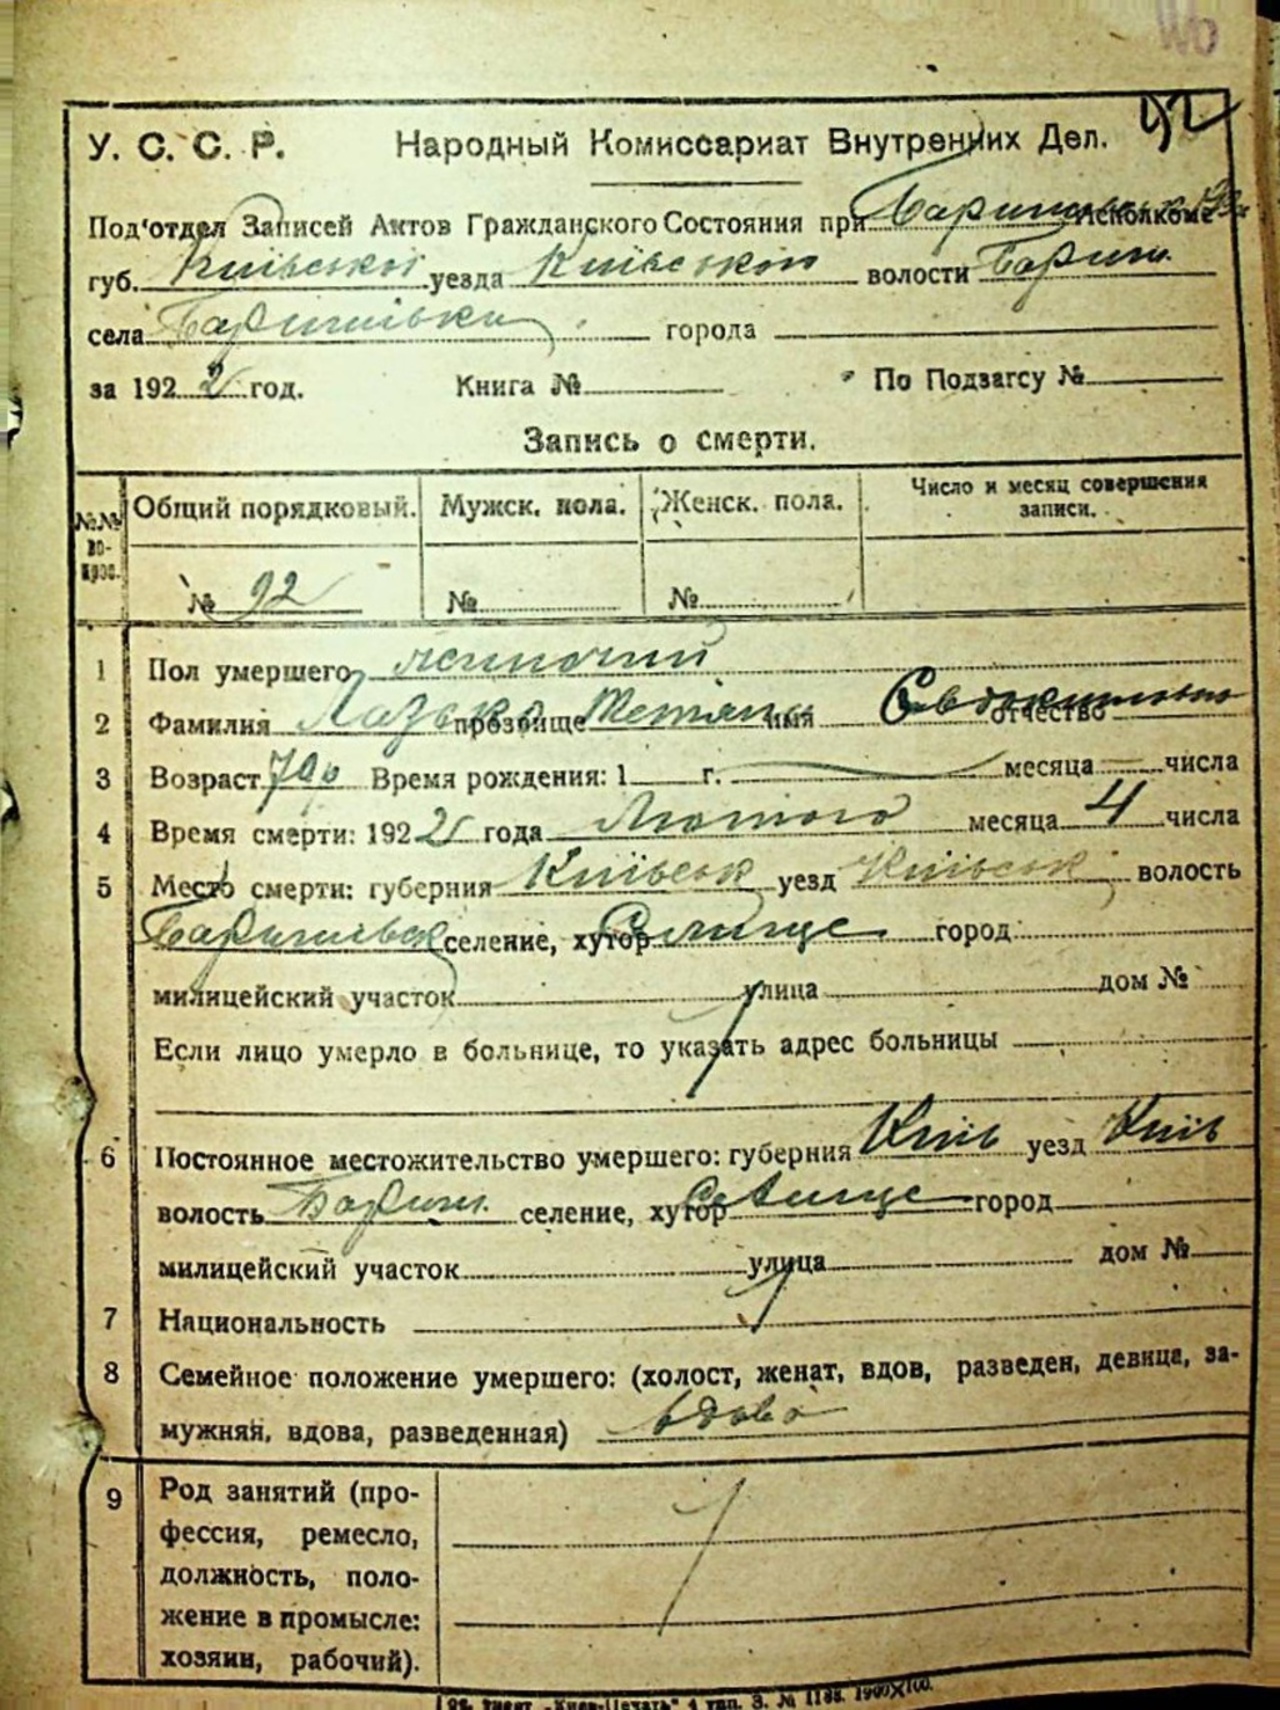 92
У. С. С. Р. Народный Комиссариат Внутренних Дел.
Под'отдел Записей Актов Гражданского Состояния при Исполкоме
губ. Київської уезда Київського волости Бориш.
села Баришівки города
за 1922 год. Книга № По Подзагсу №
Запись о смерти.
№№ во-прос. Общий порядковый. Мужск. пола. Женск. пола. Число и месяц совершения записи.
№ 92 № №
1 Пол умершего жіночий
2 Фамилия Лазько прозвище Тетяна имя отчество
3 Возраст Время рождения: 1 г. месяца числа
4 Время смерти: 1922 года Лютого месяца 4 числа
5 Место смерти: губерния Київськ уезд Київськ волость
Баришівськ селение, хутор Селище город
милицейский участок улица дом №
Если лицо умерло в больнице, то указать адрес больницы
6 Постоянное местожительство умершего: губерния Київ уезд Київ
волость Бориш. селение, хутор Селище город
милицейский участок улица дом №
7 Национальность
8 Семейное положение умершего: (холост, женат, вдов, разведен, девица, за-
мужняя, вдова, разведенная) вдова
9 Род занятий (про-
фессия, ремесло,
должность, поло-
жение в промысле:
хозяин, рабочий).
"Киев-Печать" 4 тип. З. № 1188. 1900×100.